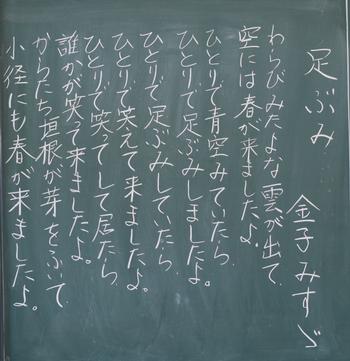 足ぶみ
金子みすゞ
わらびみたよな雲が出て、
空には春が来ましたよ。
ひとりで青空みていたら、
ひとりで足ぶみしましたよ。
ひとりで足ぶみしていたら、
ひとりで笑えて来ましたよ。
ひとりで笑てして居たら、
誰かが笑て来ましたよ。
からたち垣根が芽をふいて、
小径にも春が来ましたよ。